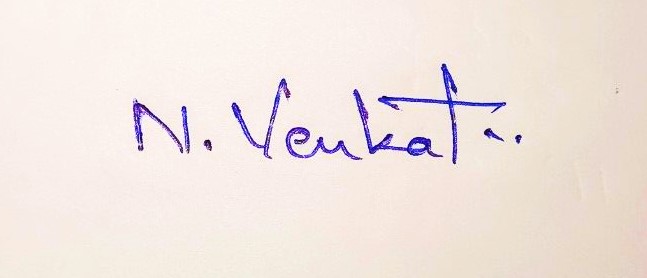 N. Venkat..